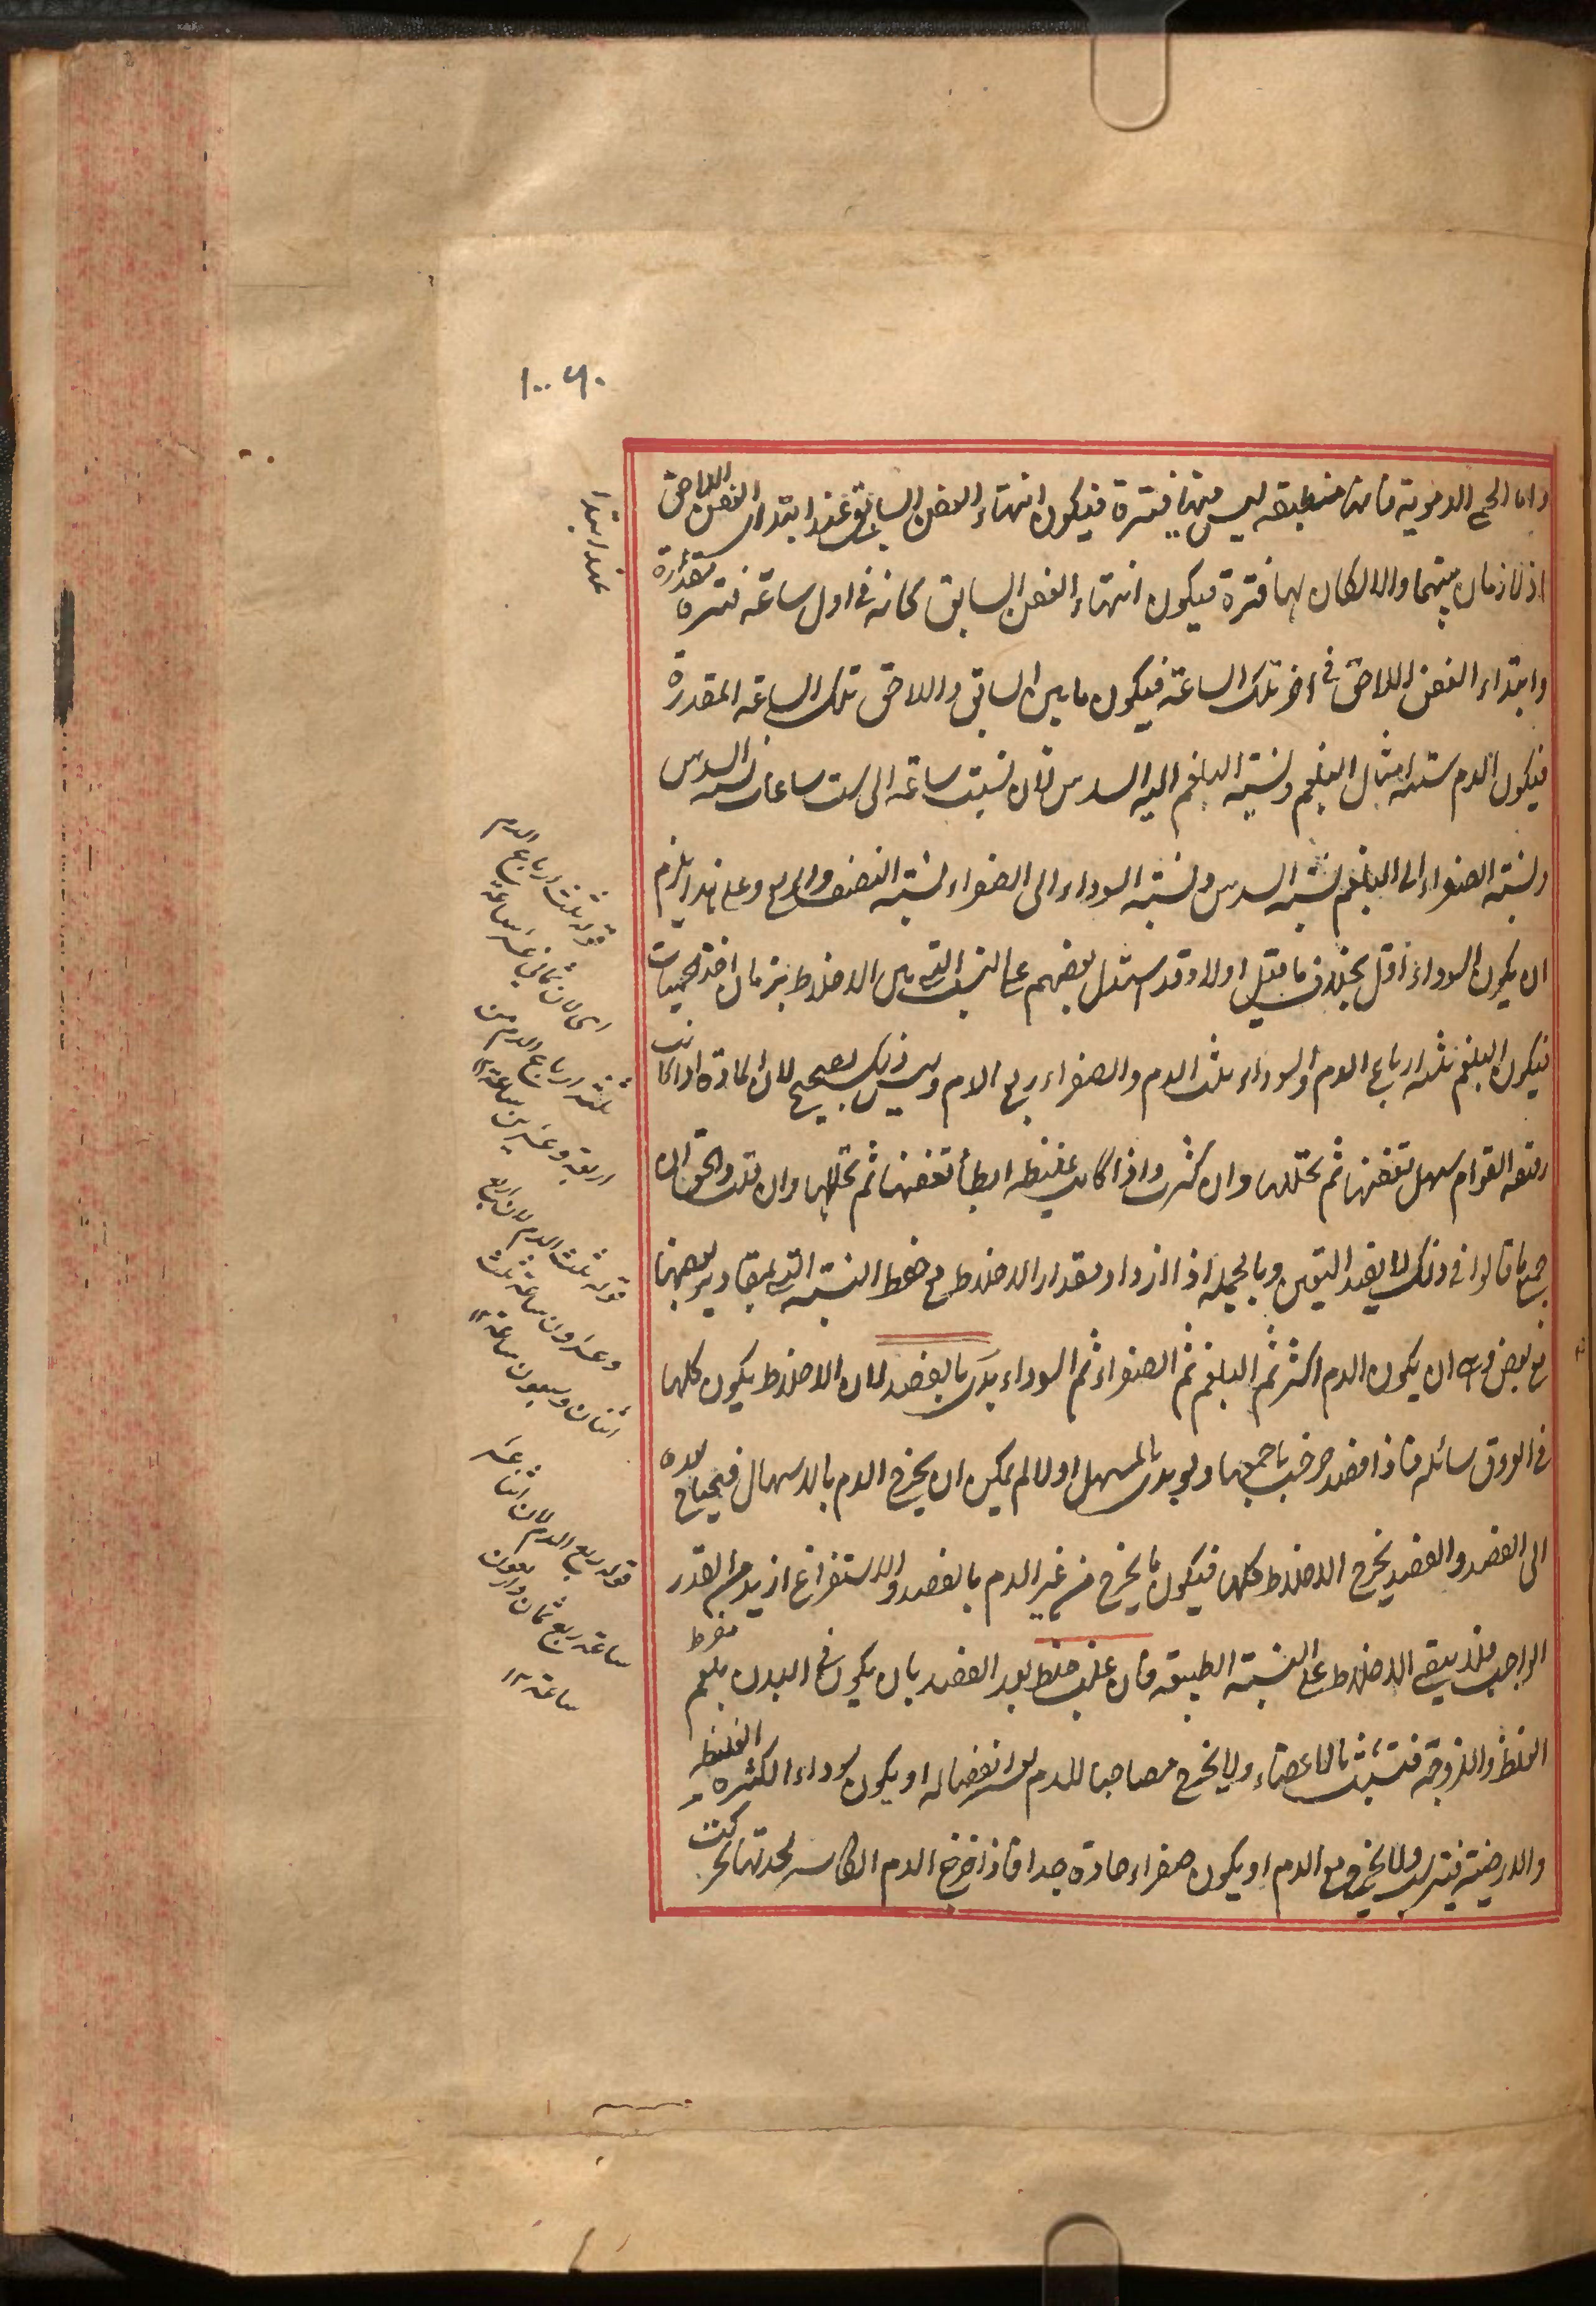 ١٠٠٦٠
واما الحمى الدموية فانها منطبقة ليس فيها فترة فيكون انتهاء العفن السابق عند ابتداء العفن اللاحق
اذ لا زمان بينهما والا لكان لها فترة فيكون انتهاء العفن السابق كانه في اول ساعة فترة مقدارة
وابتداء العفن اللاحق في اخر تلك الساعة فيكون ما بين السابق واللاحق تلك الساعة المقدرة
فيكون الدم ستة امثال البلغم ونسبة البلغم اليه السدس لان نسبت ساعة الى ست ساعات نسبة السدس
ونسبة الصفراء الى البلغم نسبة السدس ونسبة السوداء الى الصفراء نسبة النصف والربع وعلى هذا يلزم
ان يكون السوداء اقل بخلاف ما قيل اولا وقد استدل بعضهم على النسب التي بين الاخلاط بزمان اخذ الحميات
فيكون البلغم ثلثة ارباع الدم والسوداء ثلث الدم والصفراء ربع الدم وليس ذلك بصحيح لان المادة اذا كانت
رقيقة القوام سهل تعفنها ثم تحللها وان كثرت واذا كانت غليظة ابطأ تعفنها ثم تحللها وان قلت والحق ان
جميع ما قالوا في ذلك لا يفيد اليقين وبالجملة اذا ازداد مقدار الاخلاط مع حفظ النسبة التي لمقادير بعضها
مع بعض وهي ان يكون الدم اكثر ثم البلغم ثم الصفراء ثم السوداء بدئ بالفصد لان الاخلاط يكون كلها
في العروق سائلة فاذا فصد خرجت باجمعها ولو بدئ بالمسهل اولا لم يكن ان يخرج الدم بالاسهال فيحتاج بعده
الى الفصد والفصد يخرج الاخلاط كلها فيكون ما يخرج من غير الدم بالفصد والاستفراغ ازيد من القدر
الواجب فلا يبقى الاخلاط على النسبة الطبيعية فان غلب خلط بعد الفصد بان يكون في البدن بلغم مفرط
الغلظ واللزوجة فتشبث بالاعضاء ولا يخرج مصاحبا للدم لعسر انفصاله او يكون سوداء الكثيرة الغليظة
والارضية فيترسب ولا يخرج مع الدم او يكون صفراء حادة جدا فاذا خرج الدم الكاسر لحدتها تحركت
عند ابتداء
قوله ثلث ارباع الدم
اى لان ثماني عشر ساعة
ثلثة ارباع الدم من
اربعة وعشرين ساعة ١٢
قوله ثلث الدم لان اربع
وعشرون ساعة ثلث
اثنان وسبعون ساعة ١٢
قوله ربع الدم لان اثنا عشر
ساعة ربع ثمان واربعون
ساعة ١٢